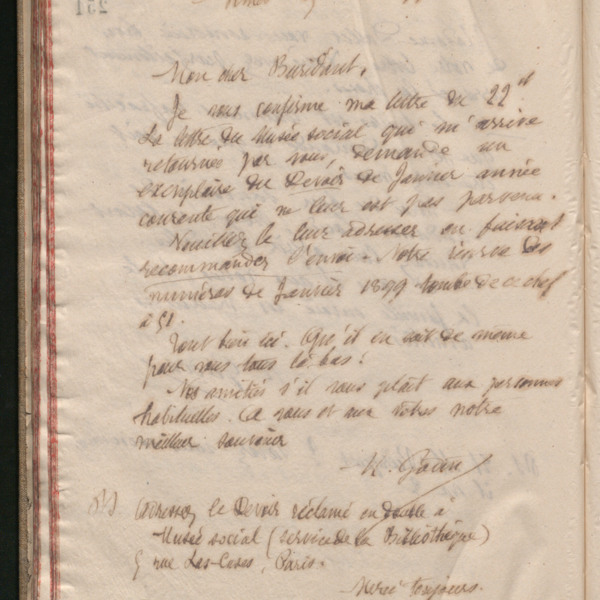 251
Nîmes
Mon cher Buridant,
Je vous confirme ma lettre du 22 ct
La lettre du Musée social qui m'arrive
retournée par vous, demande un
exemplaire du Devoir de Janvier année
courante qui ne leur est pas parvenu.
Veuillez le leur adresser en faisant
recommander l'envoi. Notre réserve des
numéros de Janvier 1899 tombe de ce chef
à 51.
Tout bien ici. Qu'il en soit de même
pour vous tous là-bas!
Nos amitiés s'il vous plaît aux personnes
habituelles. A vous et aux vôtres notre
meilleur souvenir
M Godin
PS Adressez le Devoir réclamé en double à
Musée social (service de la Bibliothèque)
5 rue Las-Cases, Paris.
Merci toujours.